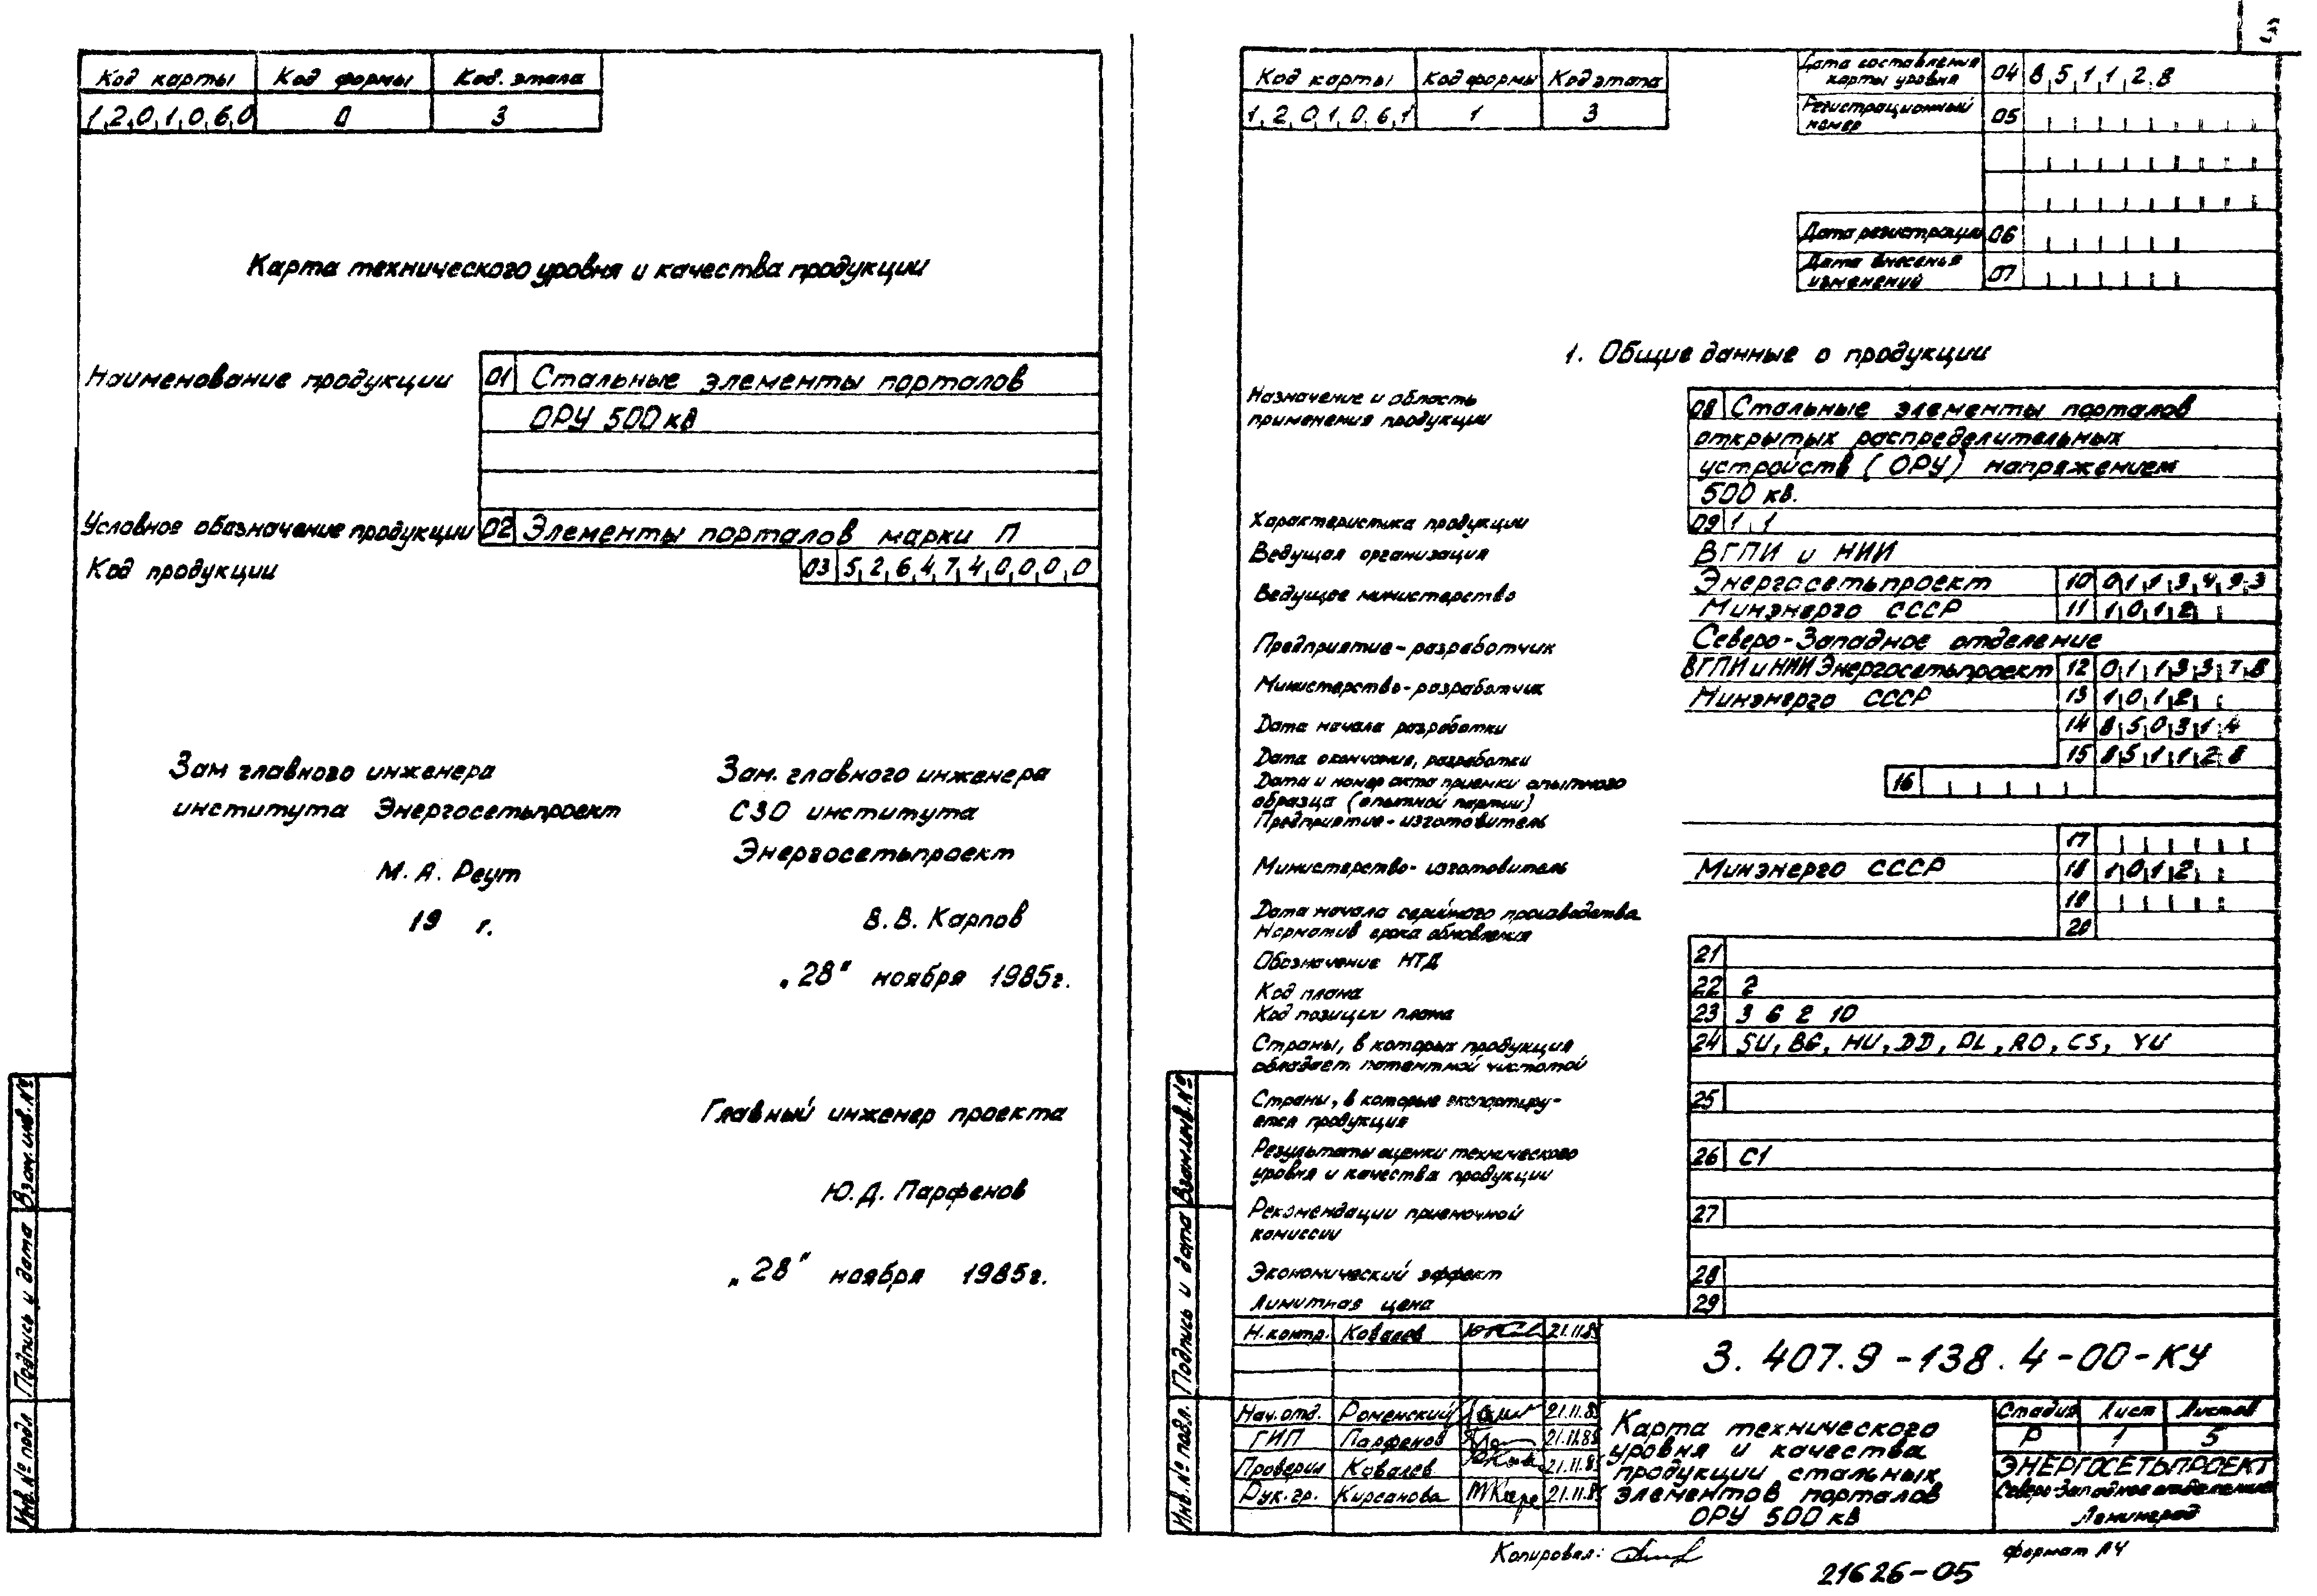 Код карты Код формы Код. этапа
1,2,0,1,0,6,0 0 3
Карта технического уровня и качества продукции
Наименование продукции 01 Стальные элементы порталов
ОРУ 500 кВ
Условное обозначение продукции 02 Элементы порталов марки П
Код продукции 03 5,2,6,4,7,4,0,0,0,0
Зам главного инженера
института Энергосетьпроект
М. А. Реут
19 г.
Зам. главного инженера
СЗО института
Энергосетьпроект
В. В. Карпов
„28" ноября 1985г.
Главный инженер проекта
Ю. Д. Парфенов
„28" ноября 1985г.
Инв. № подл Подпись и дата Взам. инв. №
3
Код карты Код формы Код этапа
1,2,0,1,0,6,1 1 3
Дата составления
карты уровня 04 8,5,1,1,2,8
Регистрационный
номер 05
Дата регистрации 06
Дата внесенья
изменений 07
1. Общие данные о продукции
Назначение и область
применения продукции
08 Стальные элементы порталов
открытых распределительных
устройств (ОРУ) напряжением
500 кв.
Характеристика продукции 09 1,1
Ведущая организация ВГПИ и НИИ
Энергосетьпроект 10 0,1,1,3,4,9,3
Ведущее министерство Минэнерго СССР 11 1,0,1,2
Предприятие-разработчик Северо-Западное отделение
ВГПИ и НИИ Энергосетьпроект 12 0,1,1,3,3,7,8
Министерство-разработчик Минэнерго СССР 13 1,0,1,2
Дата начала разработки 14 8,5,0,3,1,4
Дата окончания, разработки 15 8,5,1,1,2,8
Дата и номер акта приемки опытного
образца (опытной партии) 16
Предприятие-изготовитель
17
Министерство-изготовитель Минэнерго СССР 18 1,0,1,2
Дата начала серийного производства 19
Норматив срока обновления 20
Обозначение НТД 21
Код плана 22 2
Код позиции плана 23 3 6 2 10
Страны, в которых продукция
обладает патентной чистотой
24 SU, BG, HU, DD, PL, RO, CS, YU
Страны, в которые экспортиру-
ется продукция
25
Результаты оценки технического
уровня и качества продукции
26 С1
Рекомендации приемочной
комиссии
27
Экономический эффект 28
Лимитная цена 29
Н.контр. Ковалев 21.11.85
3.407.9-138.4-00-КУ
Нач.отд. Роменский 21.11.85
ГИП Парфенов 21.11.85
Проверил Ковалев 21.11.85
Рук.гр. Кирсанова 21.11.85
Карта технического
уровня и качества
продукции стальных
элементов порталов
ОРУ 500 кВ
Стадия Лист Листов
Р 1 5
ЭНЕРГОСЕТЬПРОЕКТ
Северо-Западное отделение
Ленинград
Инв. № подл. Подпись и дата Взам.инв.№
Копировал:
формат А4
21626-05